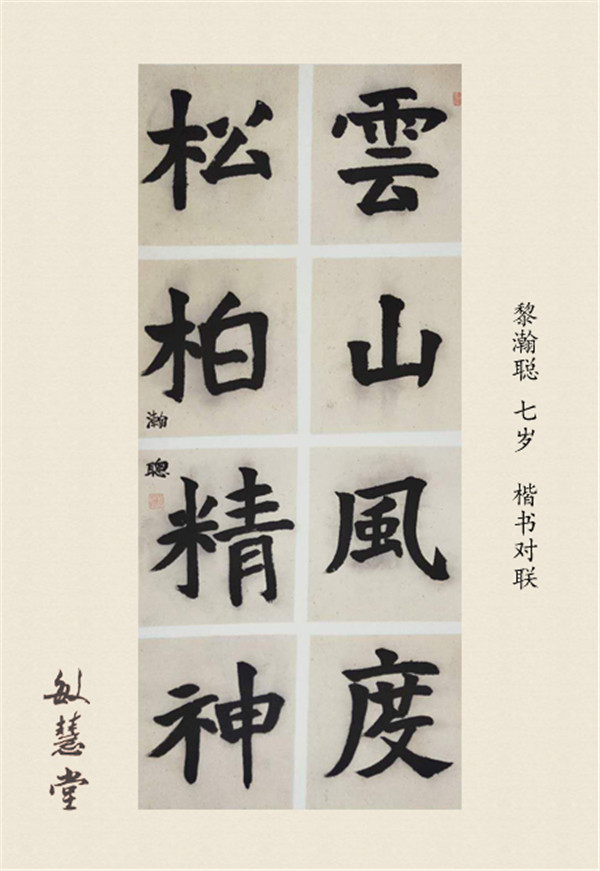 雲山風度
松柏精神
瀚聰
黎瀚聪 七岁 楷书对联
敏慧堂